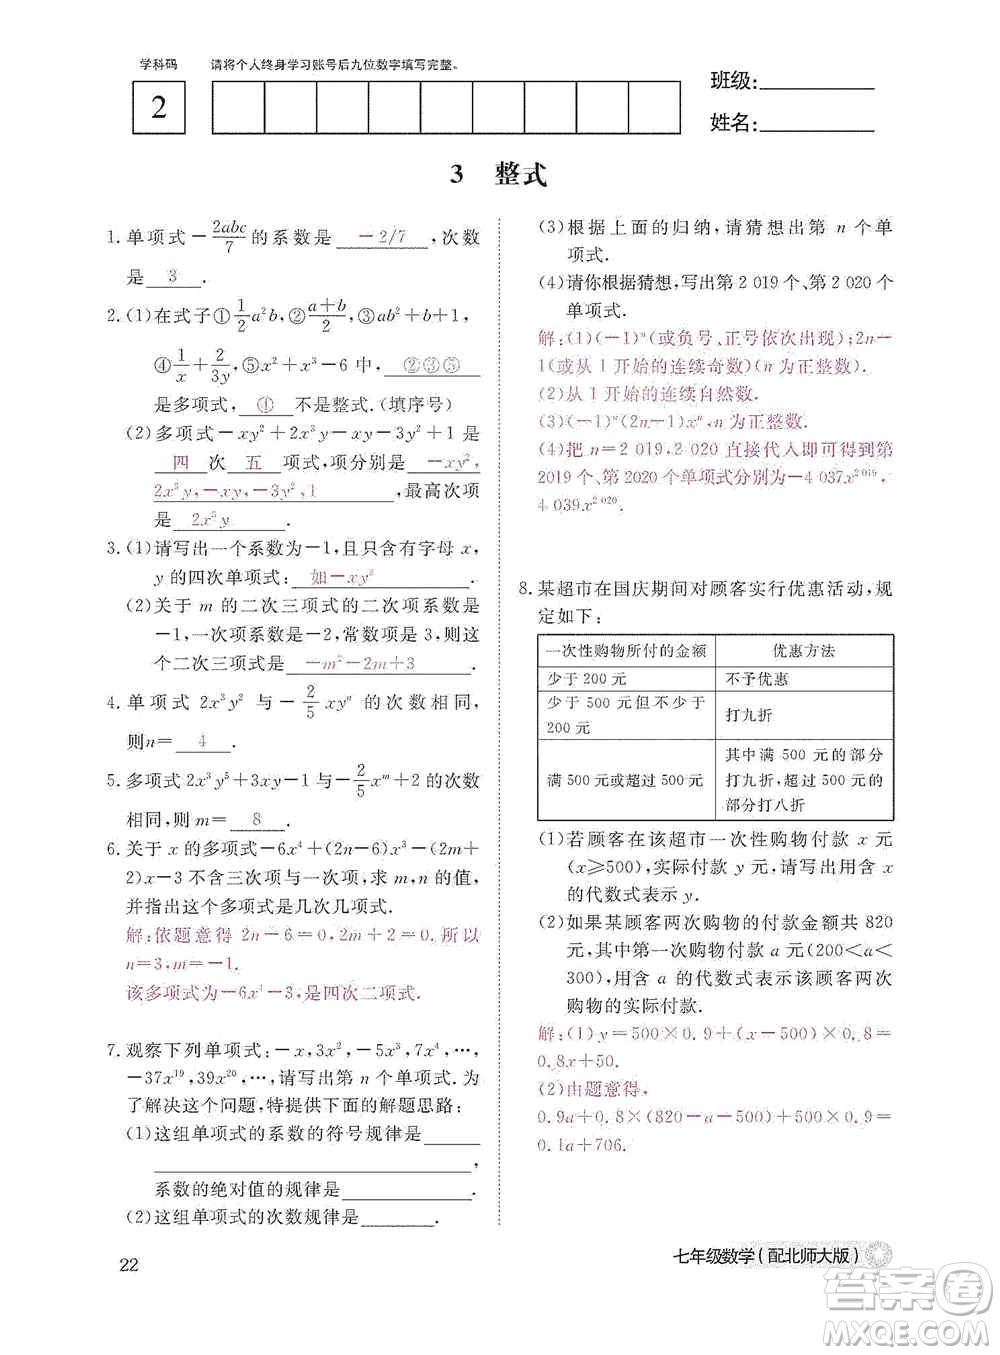 学科码 请将个人终身学习账号后九位数字填写完整。
2
班级:
姓名:
3 整式
1.单项式－2abc/7的系数是 －2/7 ,次数
是 3 .
2.(1)在式子①1/2a²b,②(a＋b)/2,③ab²＋b＋1,
④1/x＋2/3y,⑤x²＋x³－6中, ②③⑤
是多项式, ④ 不是整式.(填序号)
(2)多项式－xy²＋2x³y－xy－3y²＋1是
四 次 五 项式,项分别是 －xy²,
2x³y,－xy,－3y²,1 ,最高次项
是 2x³y .
3.(1)请写出一个系数为－1,且只含有字母x,
y的四次单项式: 如－xy³
(2)关于m的二次三项式的二次项系数为
－1,一次项系数是－2,常数项是3,则这
个二次三项式是 －m²－2m＋3 .
4.单项式2x³y²与－2/5xyⁿ的次数相同,
则n＝ 4 .
5.多项式2x³y⁵＋3xy－2/5xᵐ＋2的次数
相同,则m＝ 8 .
6.关于x的多项式－6x⁴＋(2n－6)x³－(m＋
2)x－3不含三次项与一次项,求m,n的值,
并指出这个多项式是几次几项式.
解:依题意得2n－6＝0,m＋2＝0.所以
n＝3,m＝－2.
该多项式为－6x⁴－3,是四次二项式.
7.观察下列单项式:－x,3x²,－5x³,7x⁴,…,
－37x¹⁹,39x²⁰,…,请写出第n个单项式.为
了解决这个问题,特提供下面的解题思路:
(1)这组单项式的系数的符号规律是
,
系数的绝对值的规律是 .
(2)这组单项式的次数规律是 .
(3)根据上面的归纳,请猜想出第n个单
项式.
(4)请你根据猜想,写出第2 019个、第2 020个
单项式.
解:(1)(－1)ⁿ(或负号、正号依次出现);2n－
1(或从1开始的连续奇数)(n为正整数).
(2)从1开始的连续自然数.
(3)(－1)ⁿ(2n－1)xⁿ,n为正整数.
(4)把n＝2 019,2 020直接代入即可得到第
2019个、第2020个单项式分别为－4 037x²⁰¹⁹,
4 039x²⁰²⁰.
8.某超市在国庆期间对顾客实行优惠活动,规
定如下:
一次性购物所付的金额 优惠方法
少于200元 不予优惠
少于500元但不少于
200元 打九折
满500元或超过500元 其中满500元的部分
打九折,超过500元的
部分打八折
(1)若顾客在该超市一次性购物付款x元
(x≥500),实际付款y元,请写出用含x
的代数式表示y.
(2)如果某顾客两次购物的付款金额共820
元,其中第一次购物付款a元(200＜a＜
300),用含a的代数式表示该顾客两次
购物的实际付款.
解:(1)y＝500×0.9＋(x－500)×0.8＝
0.8x＋50.
(2)由题意得,
0.9a＋0.8×(820－a－500)＋500×0.9＝
0.1a＋706.
22
七年级数学(配北师大版)
答案卷
MXQE.COM